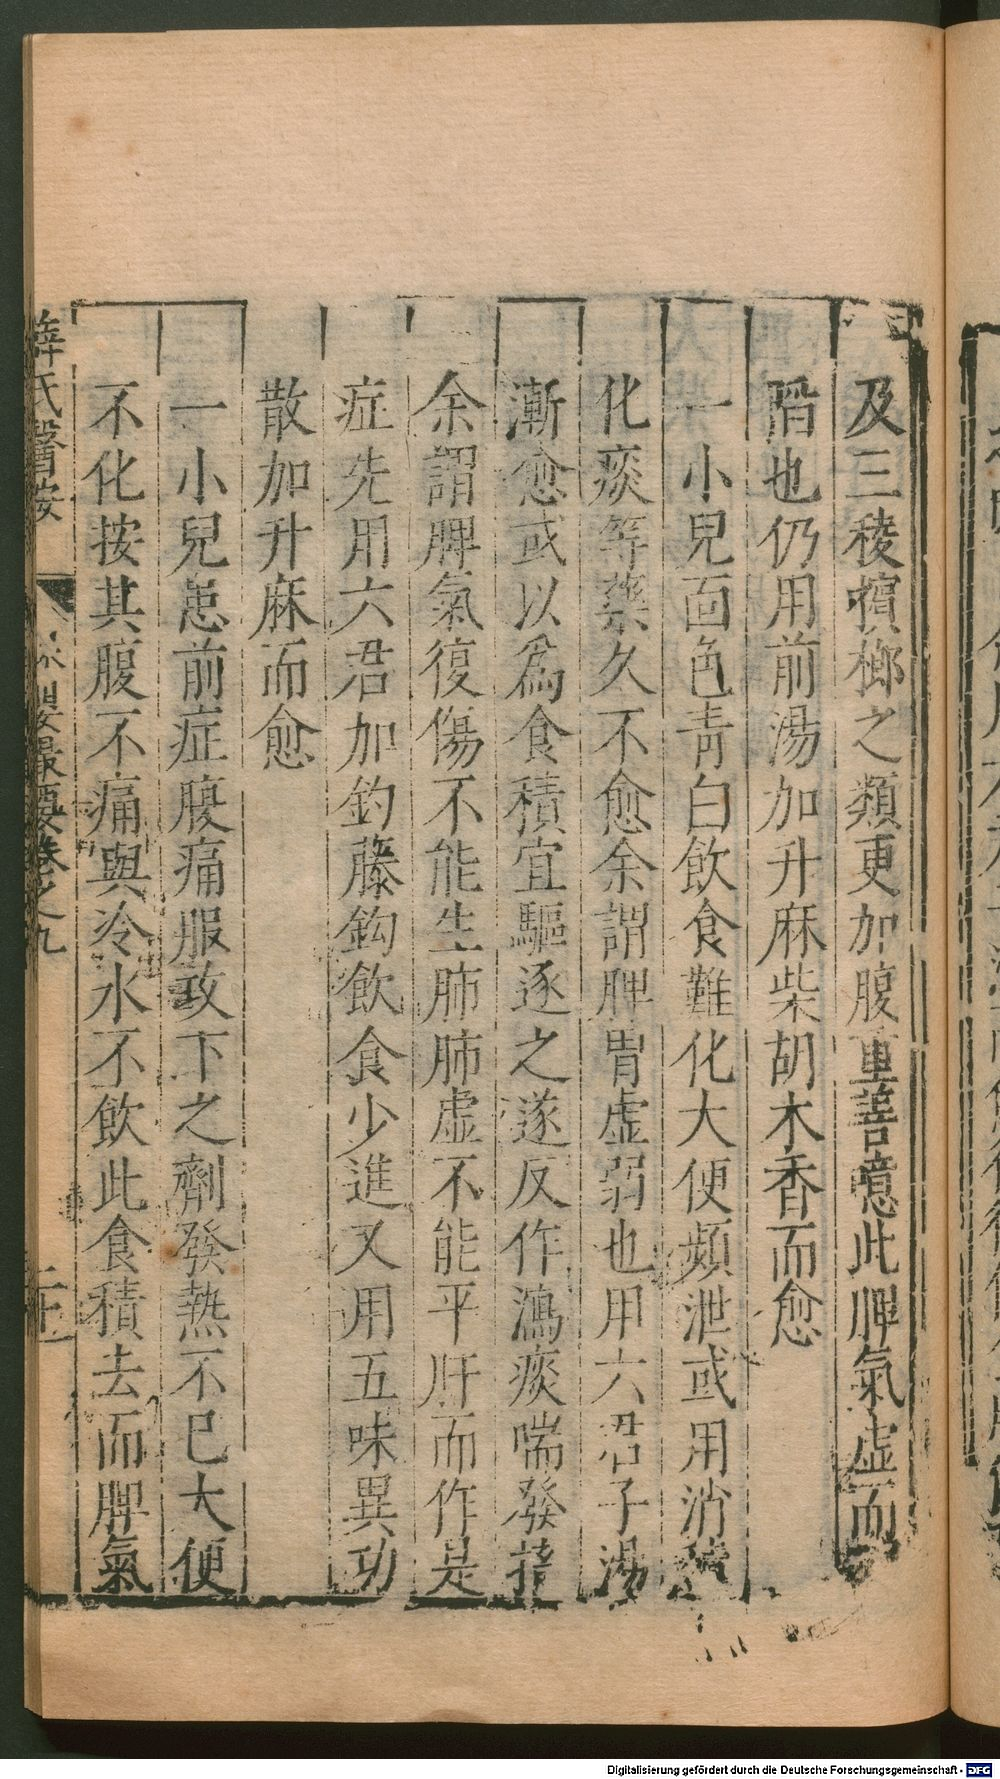 及三稜檳榔之類更加腹重善噫此脾氣虛而
䧟也仍用前湯加升麻柴胡木香而愈
一小兒面色青白飲食難化大便頻泄或用消
化痰等藥久不愈余謂脾胃虛弱也用六君子湯
漸愈或以爲食積宜驅逐之遂反作瀉痰喘發搐
余謂脾氣復傷不能生肺肺虛不能平肝而作是
症先用六君加釣藤鈎飲食少進又用五味異功
散加升麻而愈
一小兒患前症腹痛服攻下之劑發熱不已大便
不化按其腹不痛與冷水不飲此食積去而脾氣
薛氏醫按
嬰最要卷之九
Digitalisierung gefördert durch die Deutsche Forschungsgemeinschaft - DFG